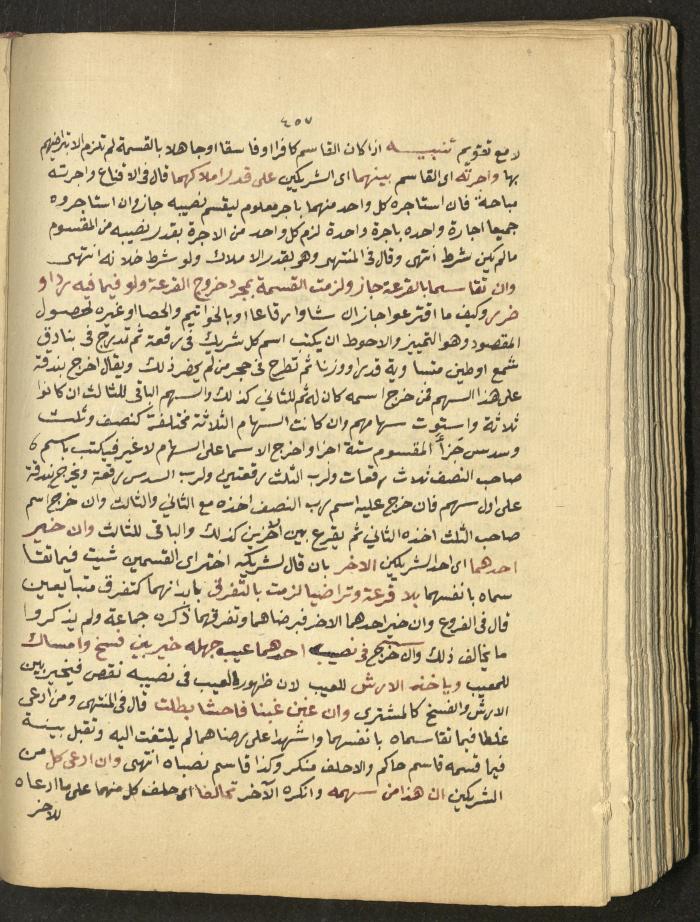 ٤٥٧
لا مع تقويم تنبيه اذا كان القاسم كافرا او فاسقا او جاهلا بالقسمة لم تلزم الا بتراضيهم
بها واجرته اى القاسم بينهما اى الشريكين على قدر املاكهما قال فى الاقناع واجرته
مباحة فان استاجره كل واحد منهما باجر معلوم ليقسم نصيبه جاز وان استاجروه
جميعا اجارة واحدة باجرة واحدة لزم كل واحد من الاجرة بقدر نصيبه من المقسوم
مالم يكن شرط انتهى وقال فى المنتهى وهو بقدر الاملاك ولو شرط خلافه انتهى
وان تقاسما بالقرعة جاز ولزمت القسمة بمجرد خروج القرعة ولو فيما فيه رد او
ضرر وكيف ما اقترعوا جاز ان شاوا رقاعا او بالخواتيم والحصا او غيره لحصول
المقصود وهو التمييز والاحوط ان يكتب اسم كل شريك فى رقعة ثم تدرج فى بنادق
شمع او طين متساوية قدرا ووزنا ثم تطرح فى حجر من لم يحضر ذلك ويقال اخرج بندقة
على هذا السهم فمن خرج اسمه كان له ثم للثاني كذلك والسهم الباقى للثالث ان كانوا
ثلاثة واستوت سهامهم وان كانت السهام الثلاثة مختلفة كنصف وثلث
وسدس جزأ المقسوم ستة اجزا واخرج الاسما على السهام لا غير فيكتب باسم
صاحب النصف ثلاث رقعات ولرب الثلث رقعتين ولرب السدس رقعة ويخرج بندقة
على اول سهم فان خرج عليه اسم رب النصف اخذه مع الثاني والثالث وان خرج اسم
صاحب الثلث اخذه الثاني ثم يقرع بين الآخرين كذلك والباقى للثالث وان خير
احدهما اى احد الشريكين الاخر بان قال لشريكه اختر اى القسمين شيت فيما تقا
سماه بانفسهما بلا قرعة وتراضيا لزمت بالتفرق بابدانهما كتفرق متبايعين
قال فى الفروع وان خير احدهما الاخر فبرضاهما وتفرقهما ذكره جماعة ولم يذكروا
ما يخالف ذلك وان خرج فى نصيب احدهما عيب جهله خير بين فسخ وامساك
للمعيب وياخذ الارش للعيب لان ظهور العيب فى نصيبه نقص فيخير بين
الارش والفسخ كالمشترى وان غبن غبنا فاحشا بطلت قال فى المنتهى ومن ادعى
غلطا فيما تقاسماه بانفسهما واشهدا على رضاهما لم يلتفت اليه وتقبل ببينة
فيما قسمه قاسم حاكم والاحلف منكر وكذا قاسم نصباه انتهى وان ادعى كل من
الشريكين ان هذا من سهمه وانكره الآخر تحالفا اى حلف كل منهما على ما ادعاه
للاخر